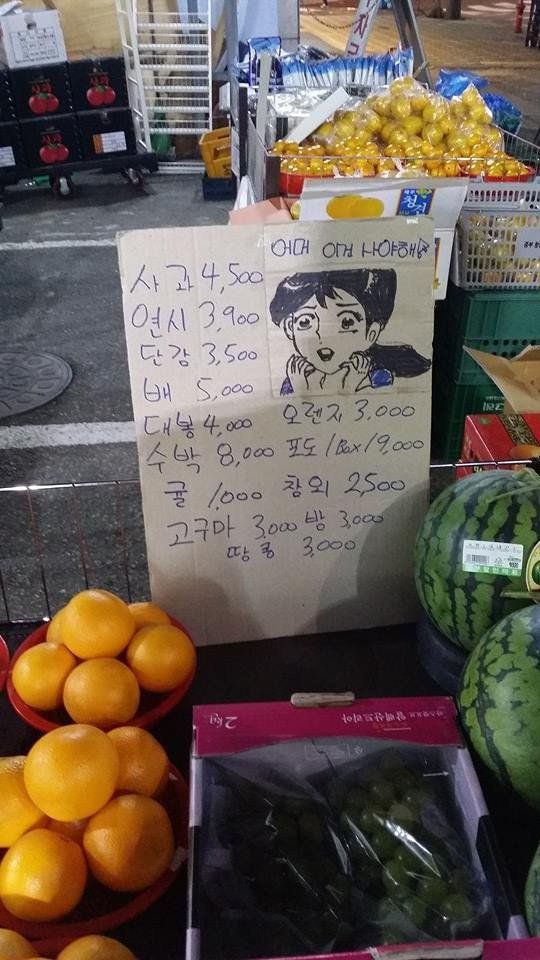 사과
어머 이건 사야해
사과 4,500
연시 3,900
단감 3,500
배 5,000
대봉 4,000 오렌지 3,000
수박 8,000 포도 1Box 19,000
귤 1,000 참외 2,500
고구마 3,000 방 3,000
땅콩 3,000
2kg